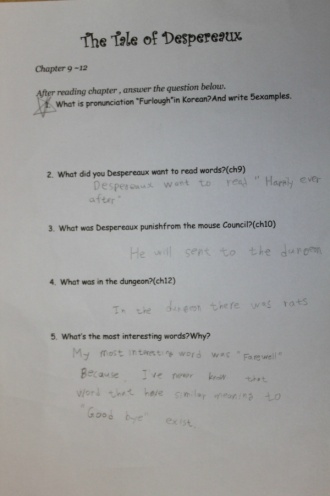 The Tale of Despereaux
Chapter 9 ~12
After reading chapter , answer the question below.
1. What is pronunciation "Furlough"in Korean?And write 5examples.
2. What did you Despereaux want to read words?(ch9)
Despereaux want to read "Happily ever
after"
3. What was Despereaux punishfrom the mouse Council?(ch10)
He will sent to the dungeon
4. What was in the dungeon?(ch12)
In the dungeon there was rats
5. What's the most interesting words?Why?
My most interesting word was "Farewell"
Because I've never know that
word that have similar meaning to
"Good bye" exist.